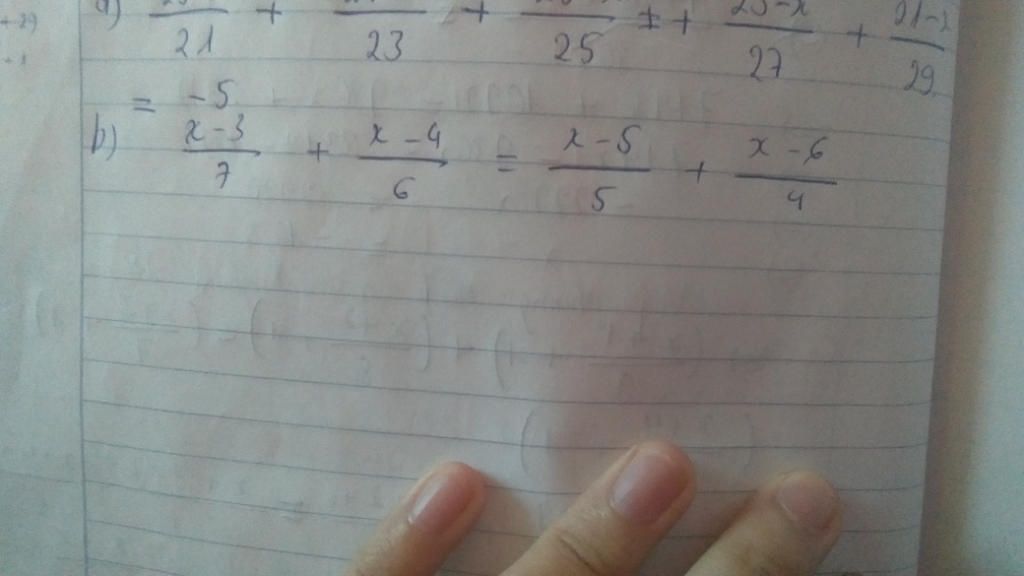 + 29
a) /21 + /23 + /25 + 25-x/27 + 21-x/29
= -5
b) x-3/7 + x-4/6 = x-5/5 + x-6/4